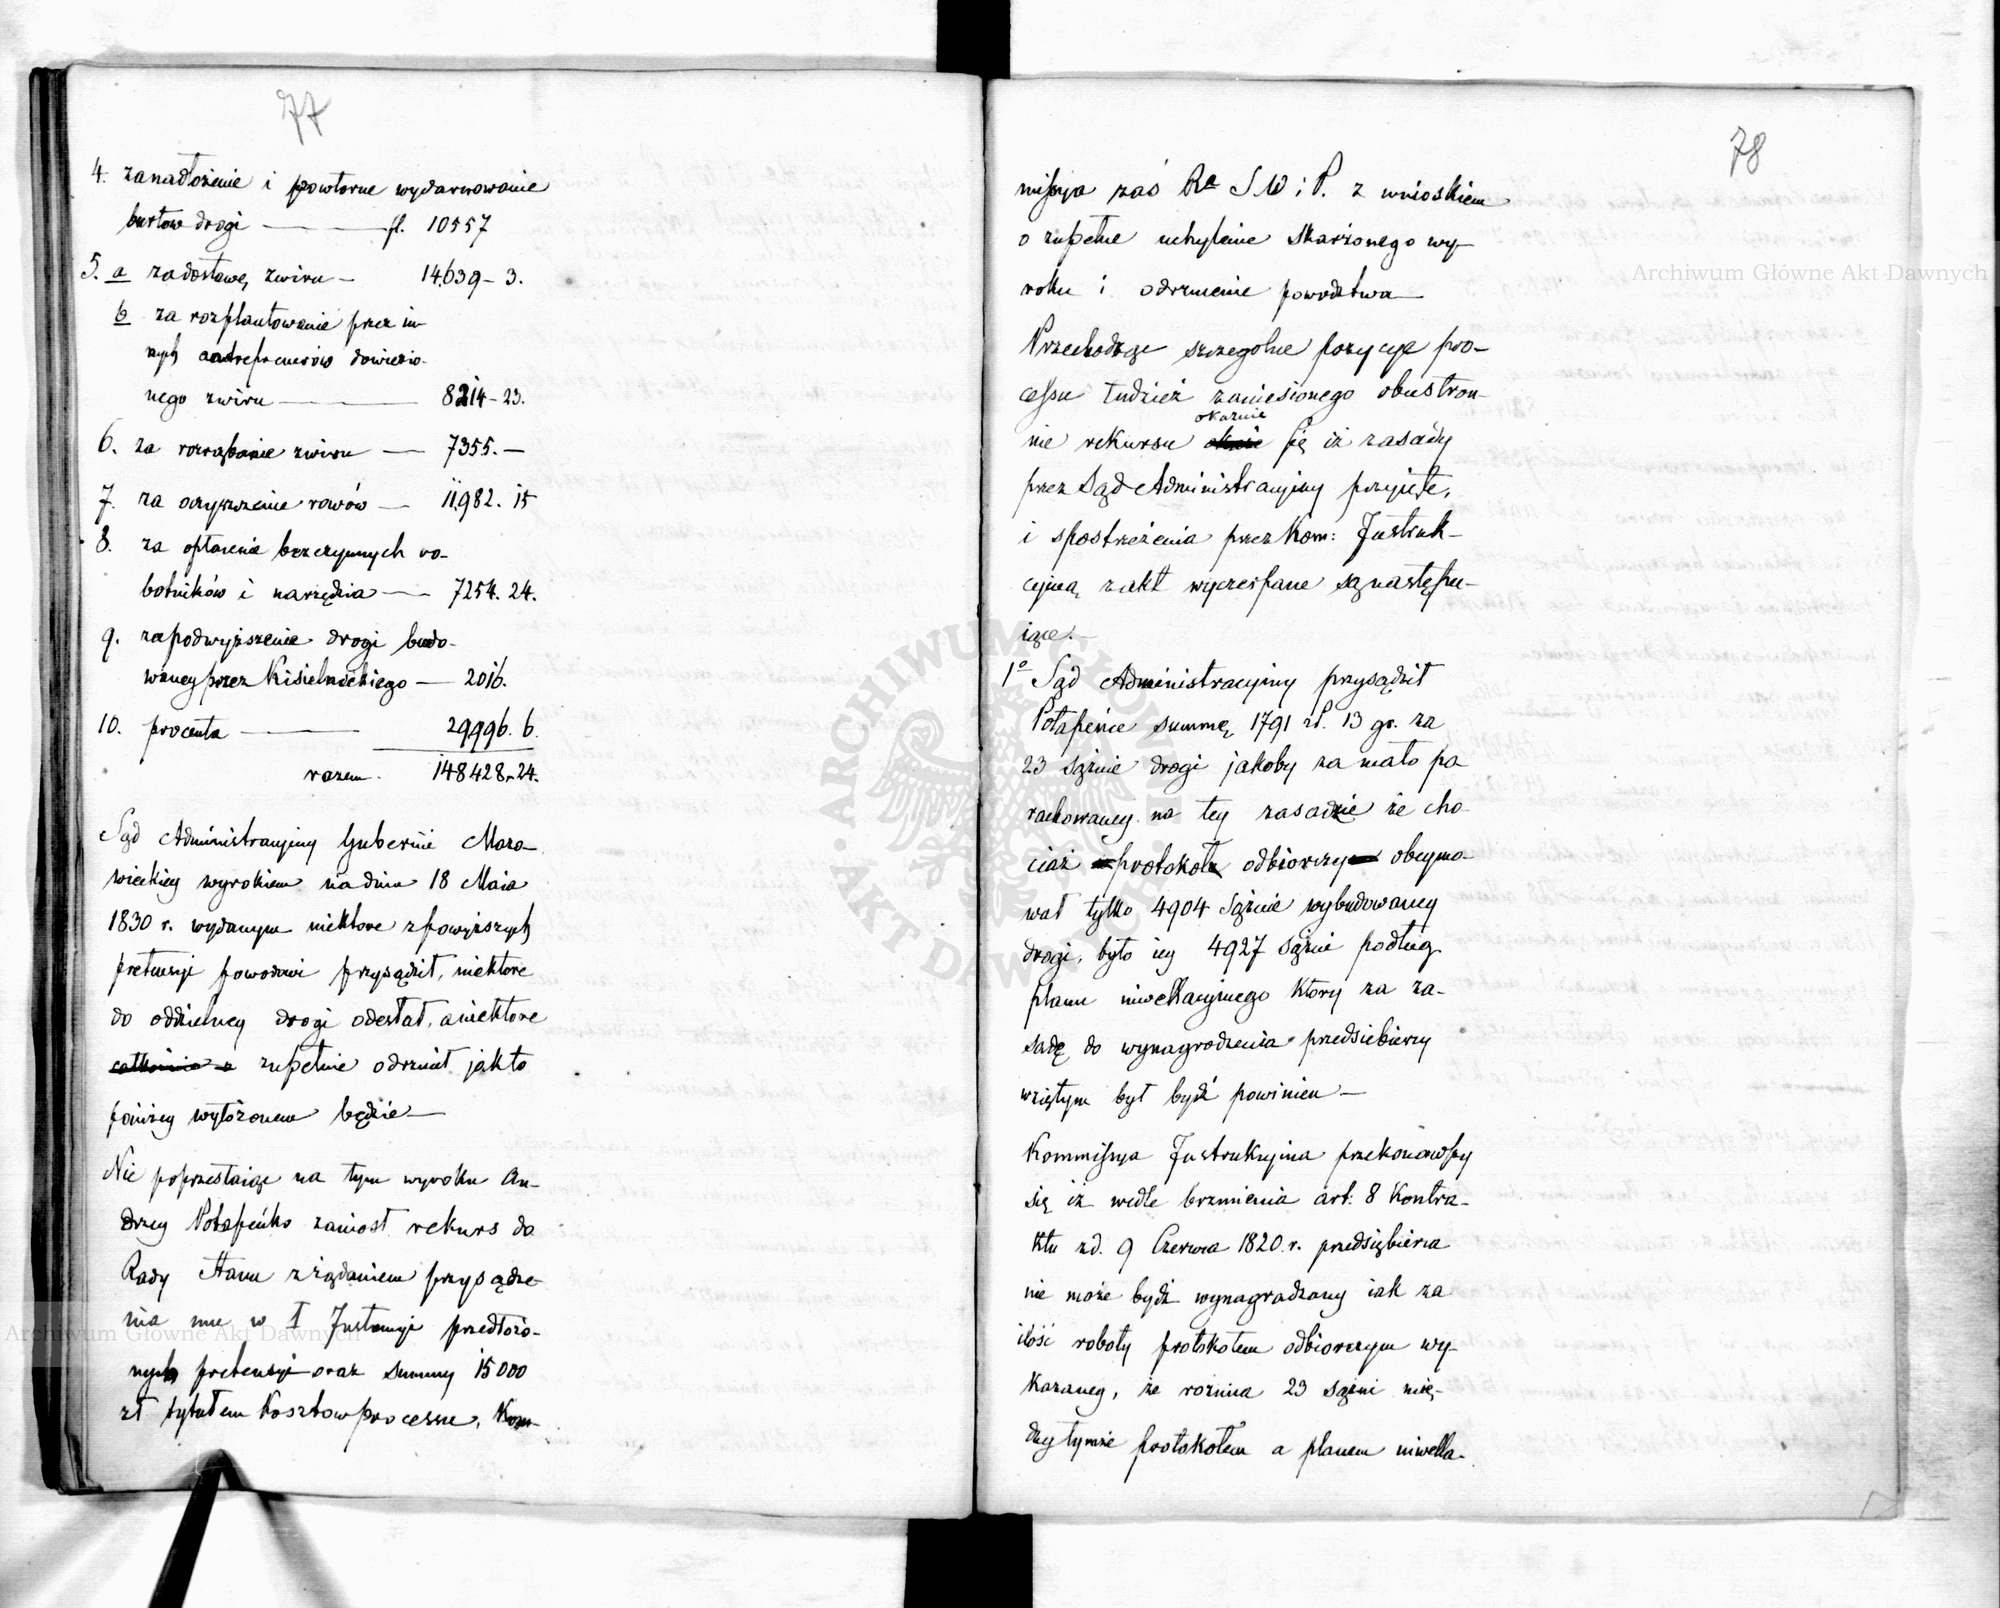 77
4. za nadłożenie i powtórne wydarnowanie
burtów drogi — fl. 10557
5. a za dostawę żwiru — 14,639 - 3.
b za rozplantowanie przez in-
nych antreprenerów dowiezio-
nego żwiru — 8214 - 23.
6. za rozrąbanie żwiru — 7355. —
7. za oczyszczenie rowów — 11,982. 15
8. za opłacenie bezczynnych ro-
botników i narzędzia — 7254. 24.
9. za podwyższenie drogi budo-
waney przez Kisielnickiego — 2016.
10. procenta — 29996. 6.
razem. 148428, 24.
Sąd Administracyiny Gubernii Mazo-
wieckiey wyrokiem na dniu 18 Maia
1830 r. wydanym niektóre z powyższych
pretensyi powodowi przysądził, niektóre
do oddzielney drogi odesłał, a niektóre
całkowicie a zupełnie odrzucił jak to
poniżey wyłożonem będzie —
Nie poprzestaiąc na tym wyroku An-
drzey Potapeńko zaniosł rekurs do
Rady Stanu z żądaniem przysądze-
nia mu w I Instancyi przedłożo-
nych pretensyi oraz summy 15000
zł tytułem kosztow processu, Kom-
78
missya zaś Ra S. W i P. z wnioskiem
o zupełne uchylenie skarżonego wy-
roku i odrzucenie powodztwa —
Przechodząc szczegolne pozycye pro-
cessu tudzież zaniesionego obustron-
okazuie
nie rekursu się iż zasady
przez Sąd Administracyiny przyięte,
i spostrzeżenia przez Kom: Instruk-
cyiną z akt wyczerpane są następu-
iące. —
1º Sąd Administracyiny przysądził
Potapeńce summę 1791 zł. 13 gr. za
23 sążnie drogi jakoby za mało po
rachowaney na tey zasadzie że cho-
ciaż protokoł odbiorczy obeymo-
wał tylko 4904 sążnie wybudowaney
drogi, było iey 4927 sążni podług
planu niwellacyinego który za za-
sadę do wynagrodzenia przedsiebiercy
wziętym był bydź powinien —
Kommissya Instrukcyina przekonawszy
się iż wedle brzmienia art: 8 Kontra-
ktu z d. 9 Czerwca 1820 r. przedsiębierca
nie może bydź wynagradzany iak za
ilość roboty protokołem odbiorczym wy-
kazaney, że roźnica 23 sążni mię-
dzy tymże protokołem a planem niwella-
Archiwum Główne Akt Dawnych
Archiwum Główne Akt Dawnych
ARCHIWUM GŁÓWNE · AKT DAWNYCH ·